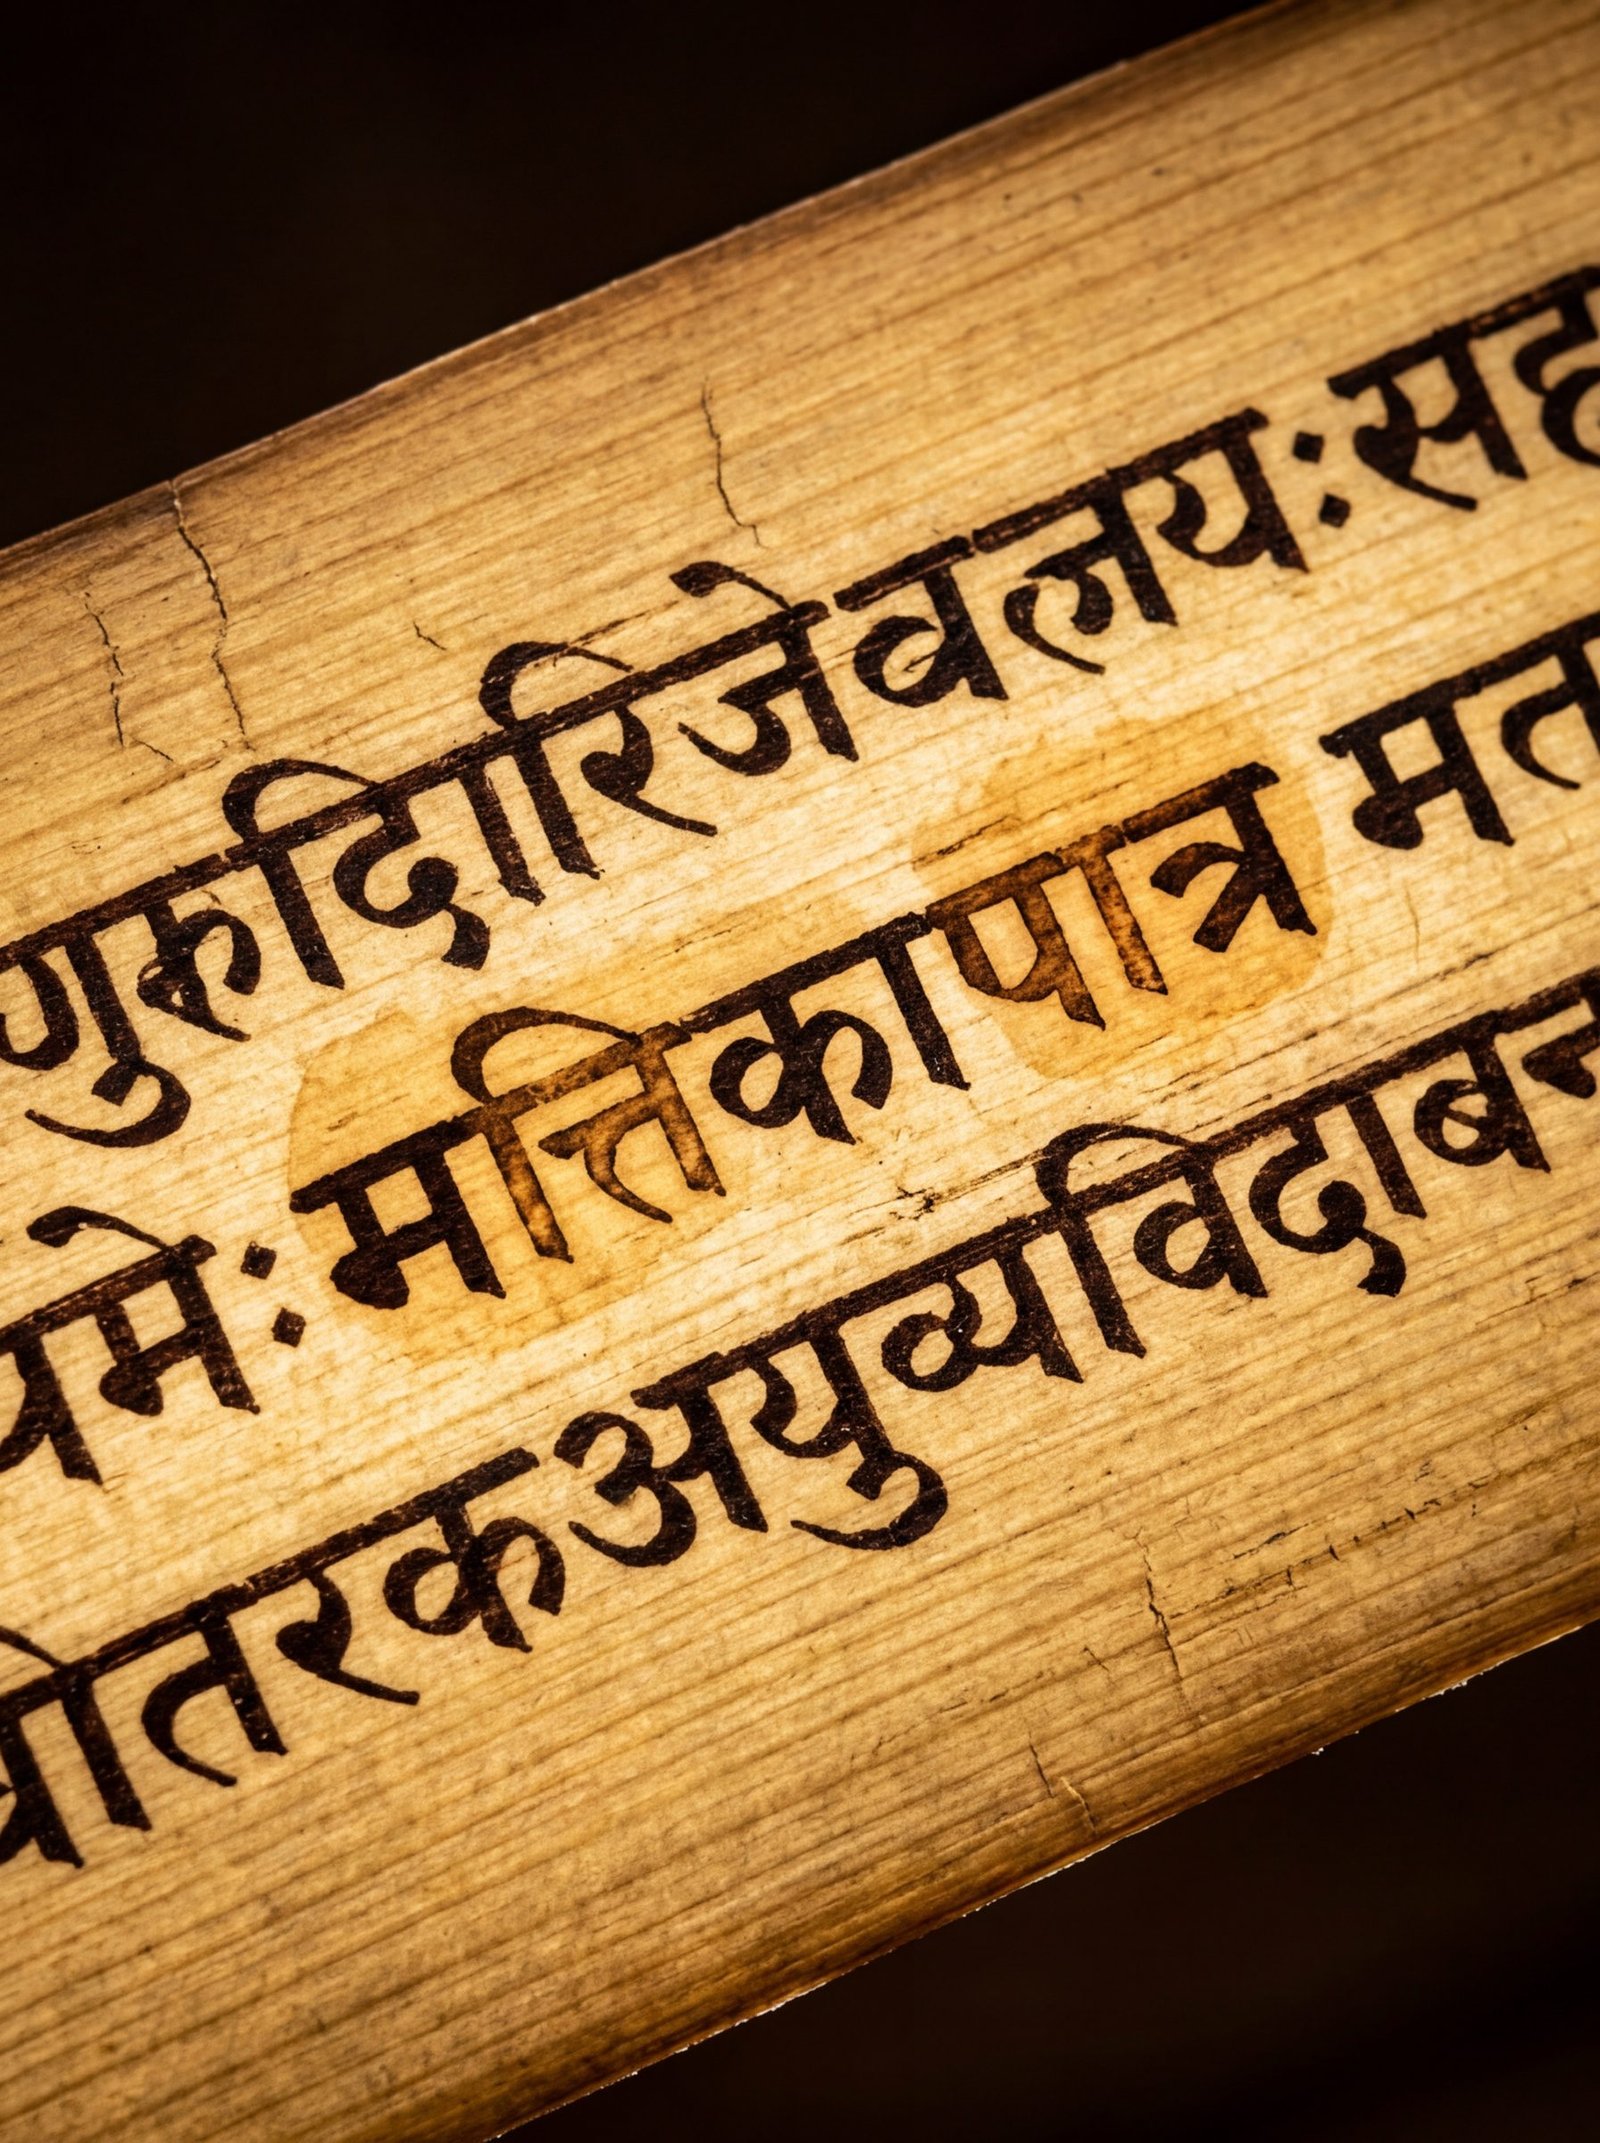 गुरुदिारिजेवलयः सह
यमेः मत्तिकापात्र मत
ोतरकअयुव्यविदाबन